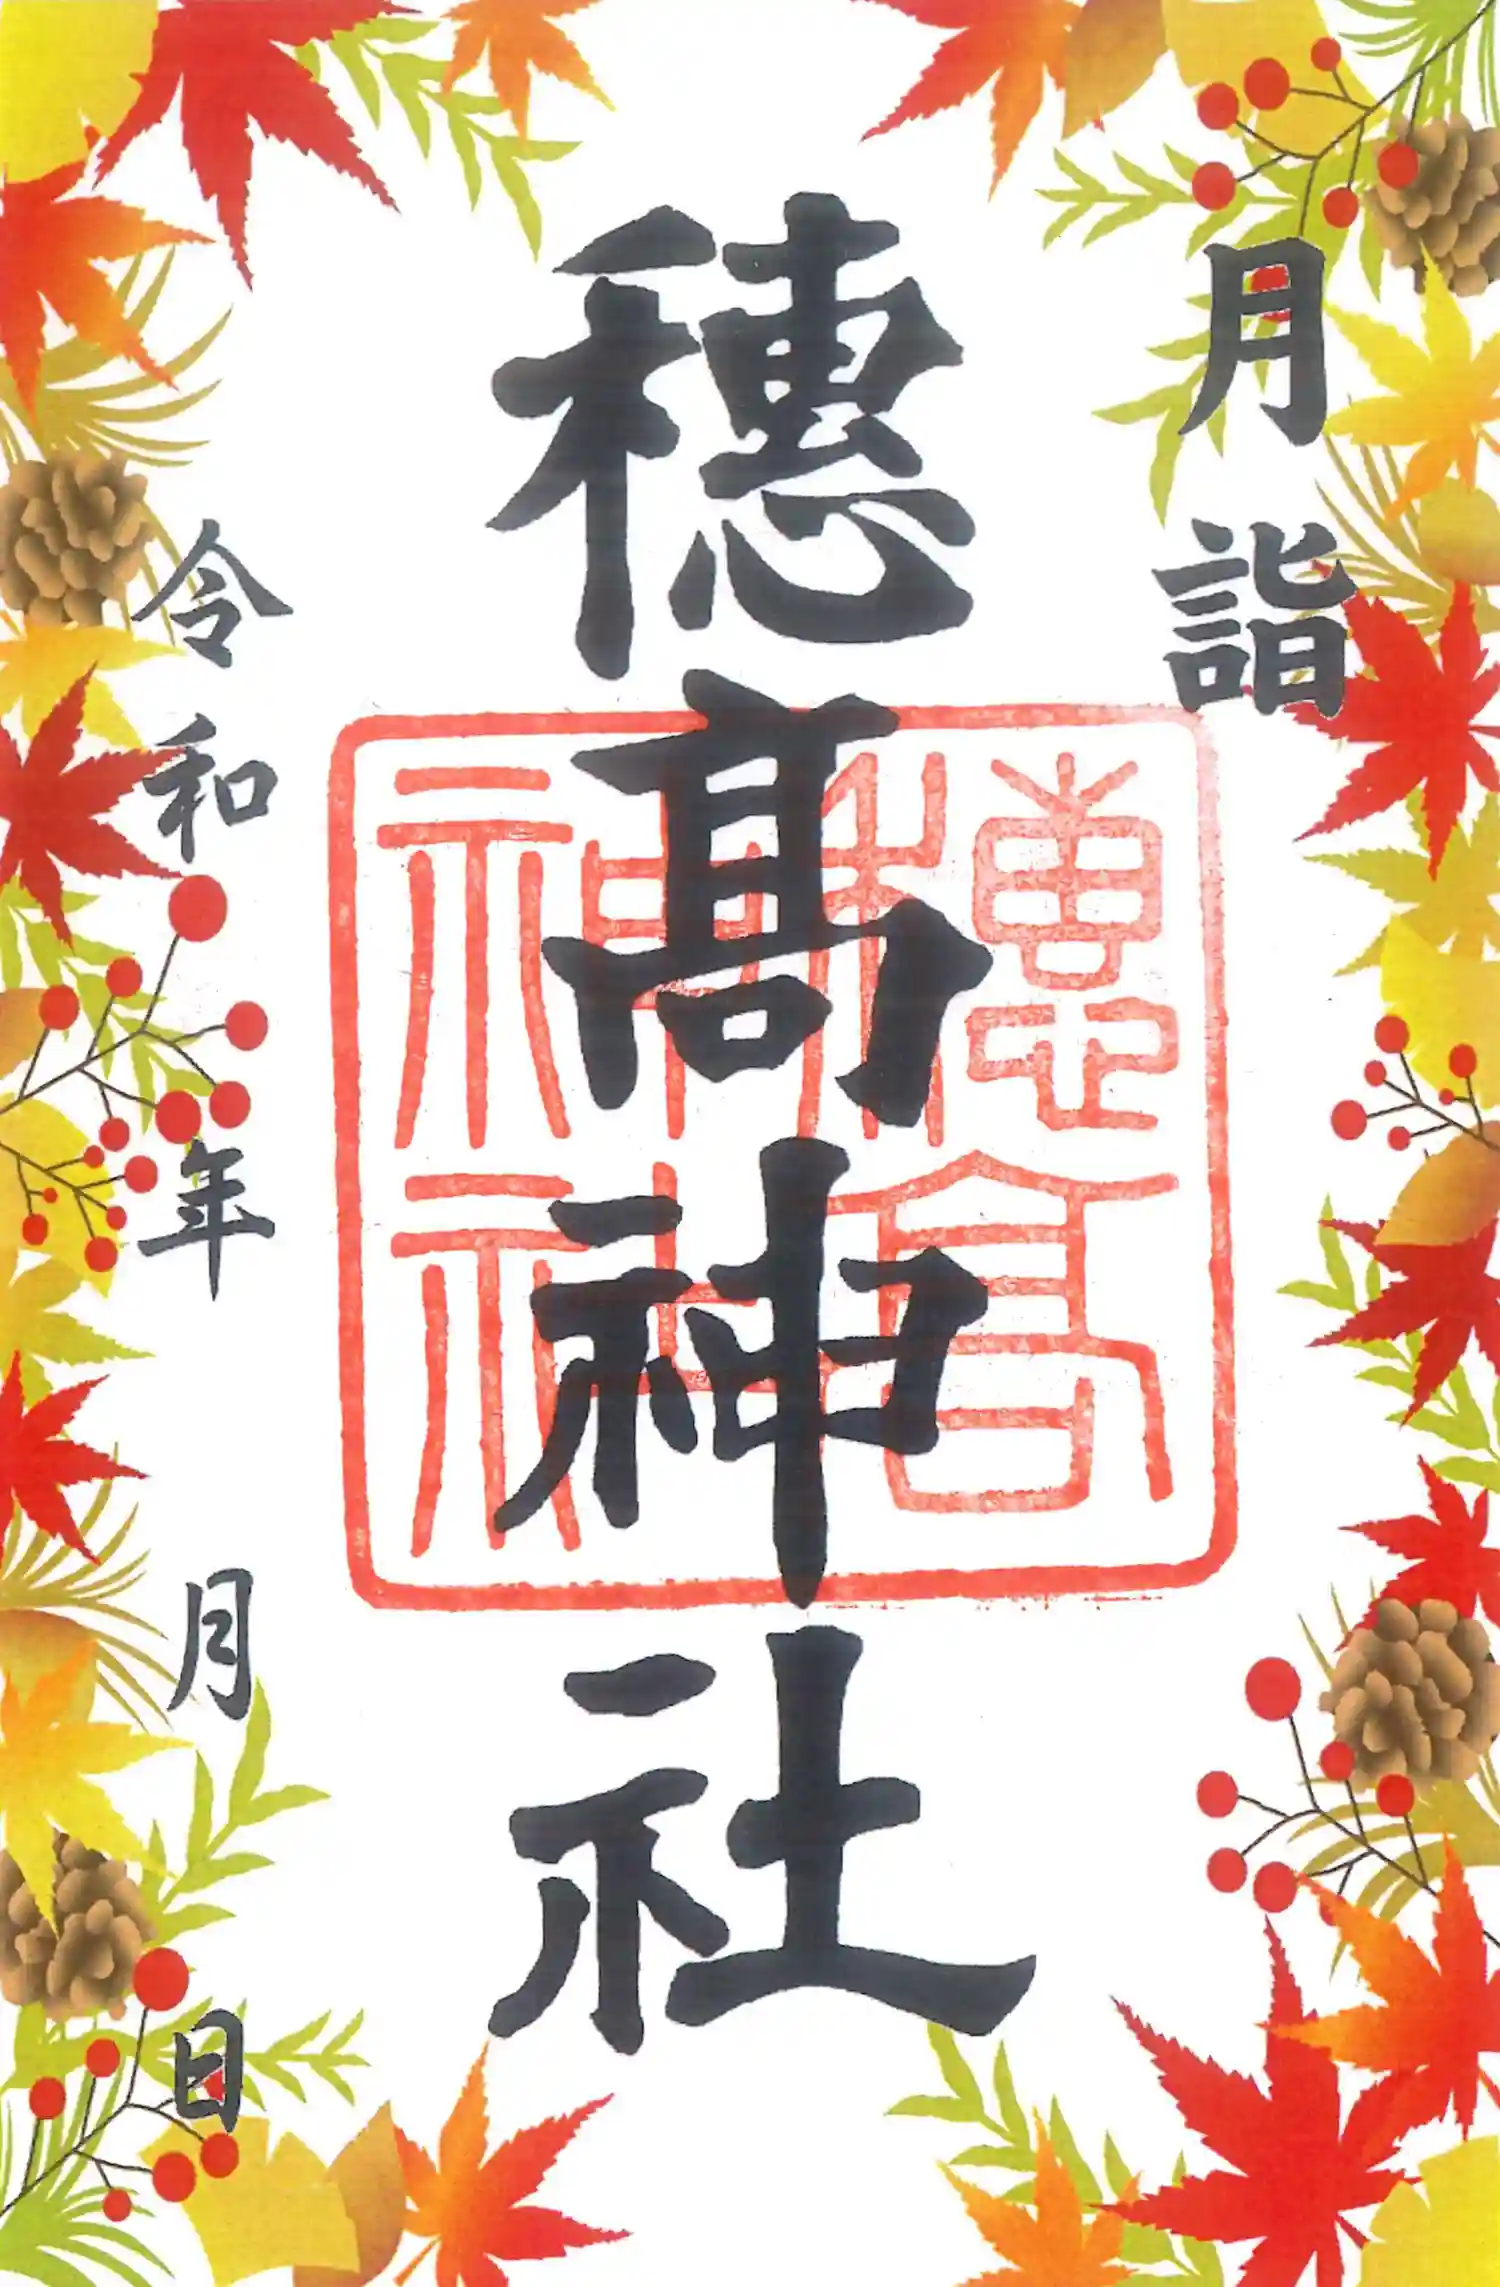 月詣
穂髙神社
穂髙
神社
令和 年 月 日